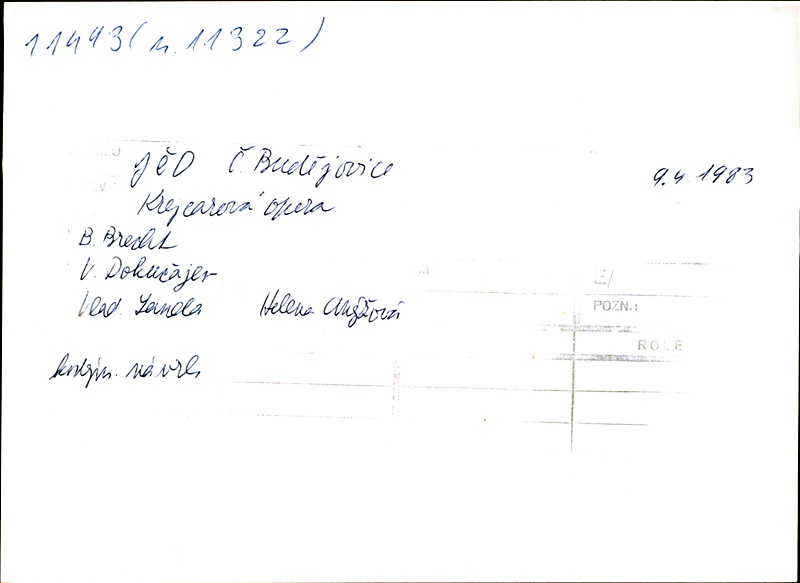 11493 (n. 11322)
JčD Č. Budějovice 9.4.1983
Krejcarová opera
B. Brecht
V. Dokučajev
Vlad. Landa Helena
kostým. návrh
E/
POZN.:
ROLE